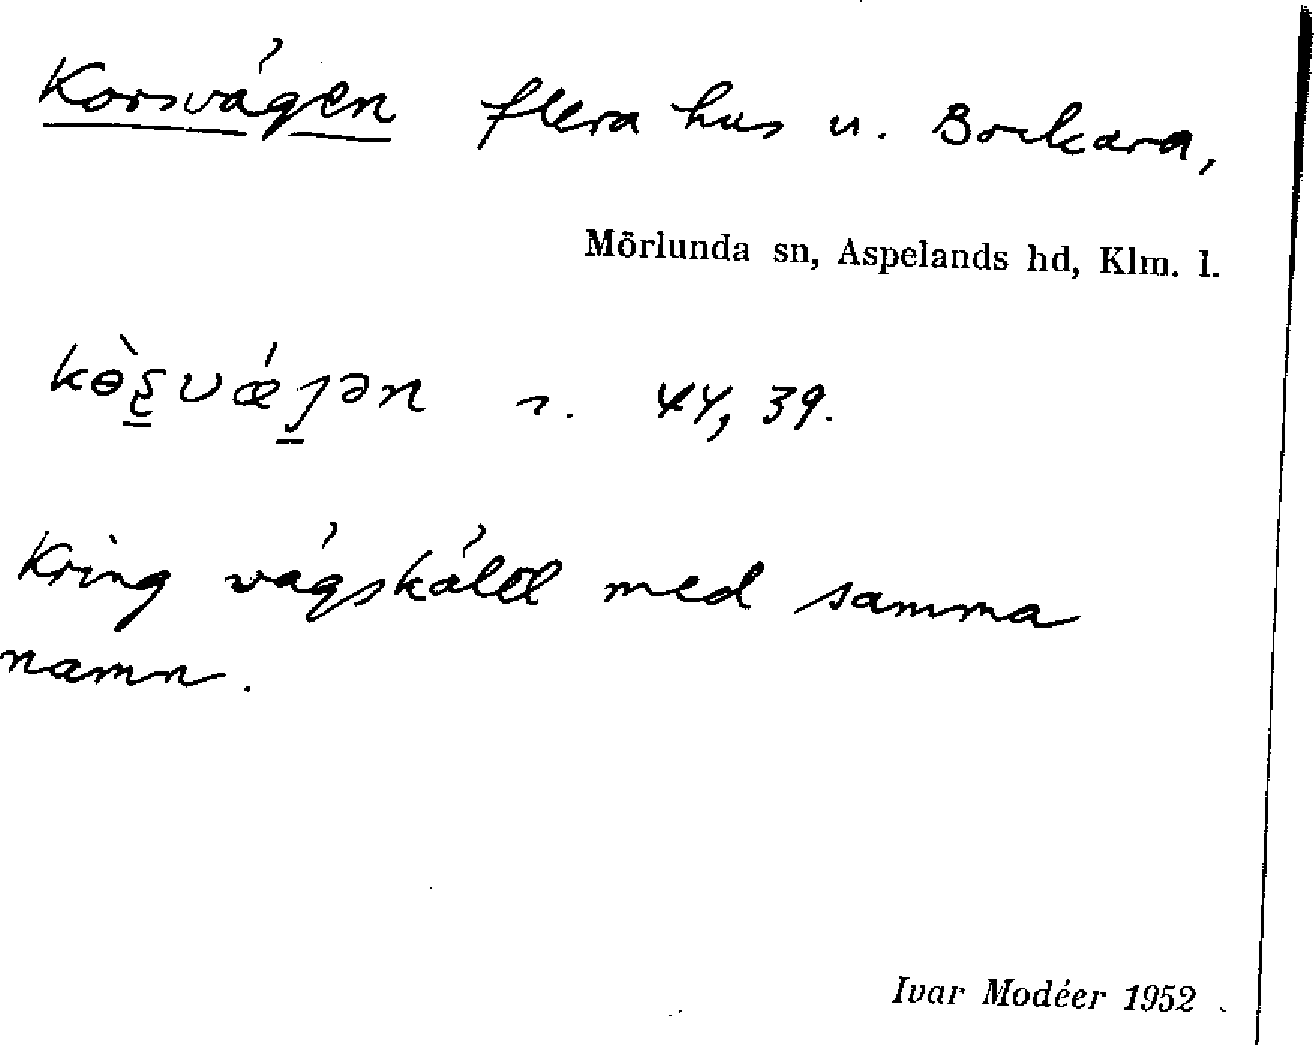 Korsvägen flera hus u. Bockara,
Mörlunda sn, Aspelands hd, Klm. l.
44, 39.
Kring vägskälel med samma
namn.
Ivar Modéer 1952